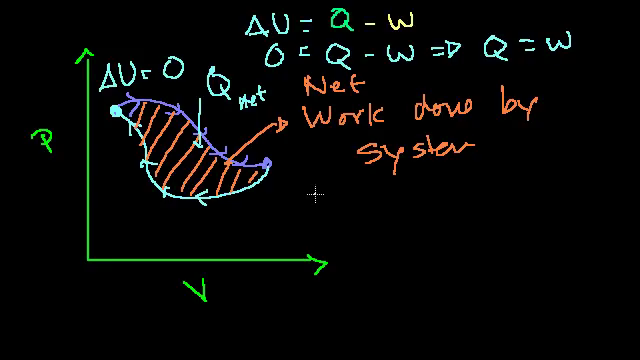 ΔU = Q - W
0 = Q - W => Q = W
ΔU = 0
Q net
Net
Work done by
system
P
V